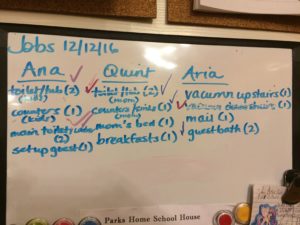 Jobs 12/12/16
Ana Quint Aria
toilet/tub (2)
(kids)
counters (1)
(kids)
(2)
set up guest (1)
toilet/tub (2)
(mom)
counters/sinks (1)
(mom)
mom's bed (1)
breakfasts (1)
vacuum upstairs (1)
vacuum downstairs (1)
mail (1)
guest bath (2)
Parks Home School House